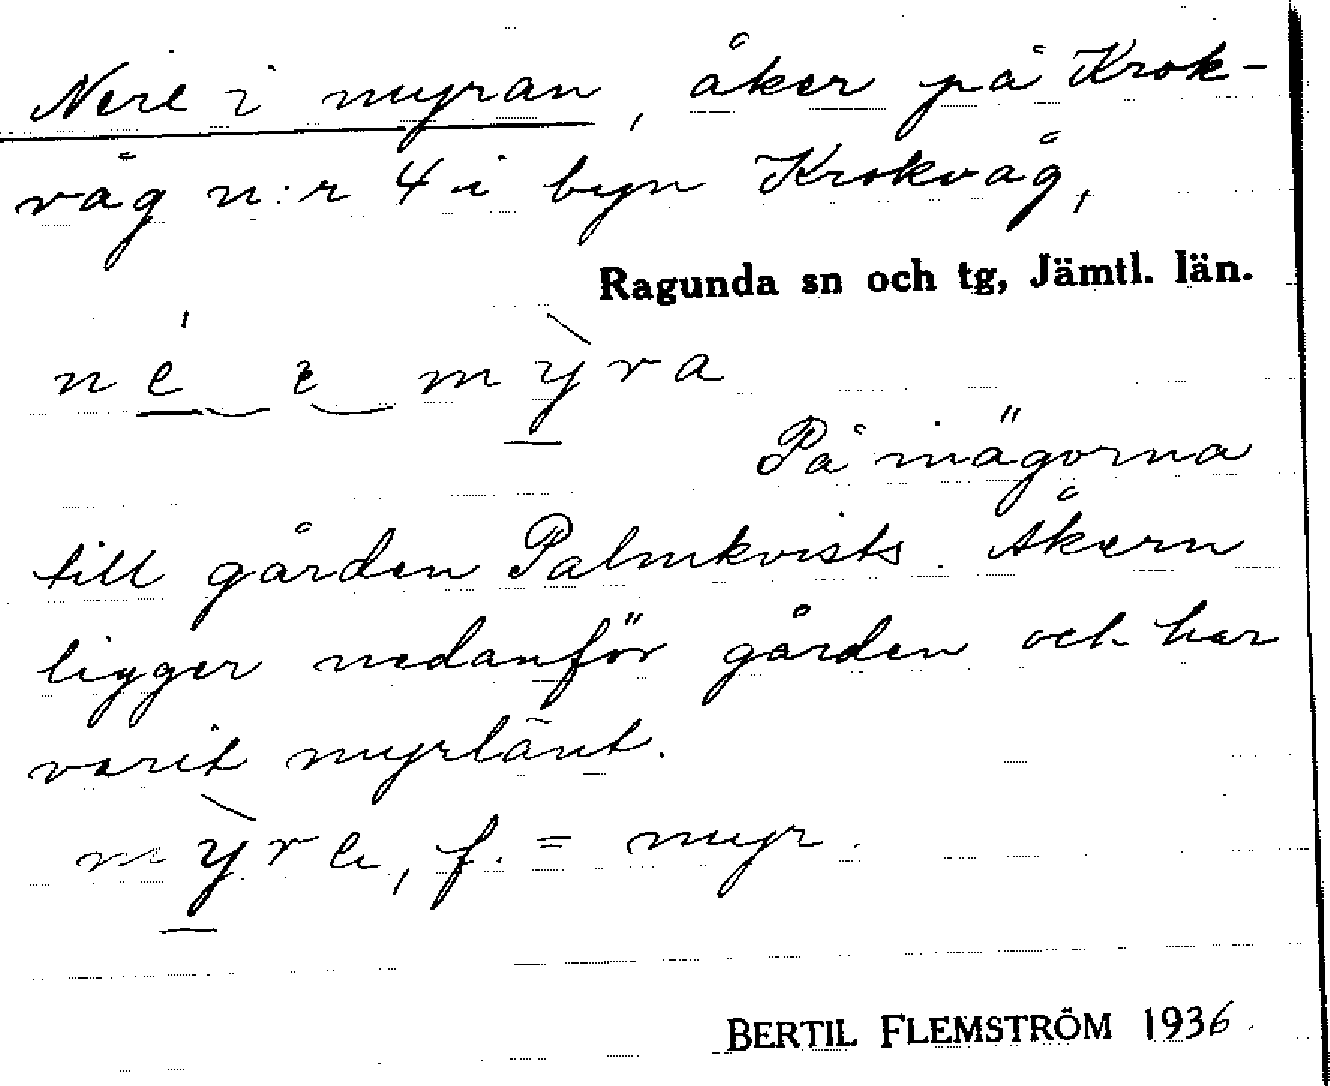 Nere i myran, åker på Krok-
våg n:r 4 i byn Krokvåg,
Ragunda sn och tg, Jämtl. län.
né ɩ mỳra
På inägorna
till gården Palmkvists. Åkern
ligger nedanför gården och har
varit myrlänt.
mỳra, f. = myr.
BERTIL FLEMSTRÖM 1936.